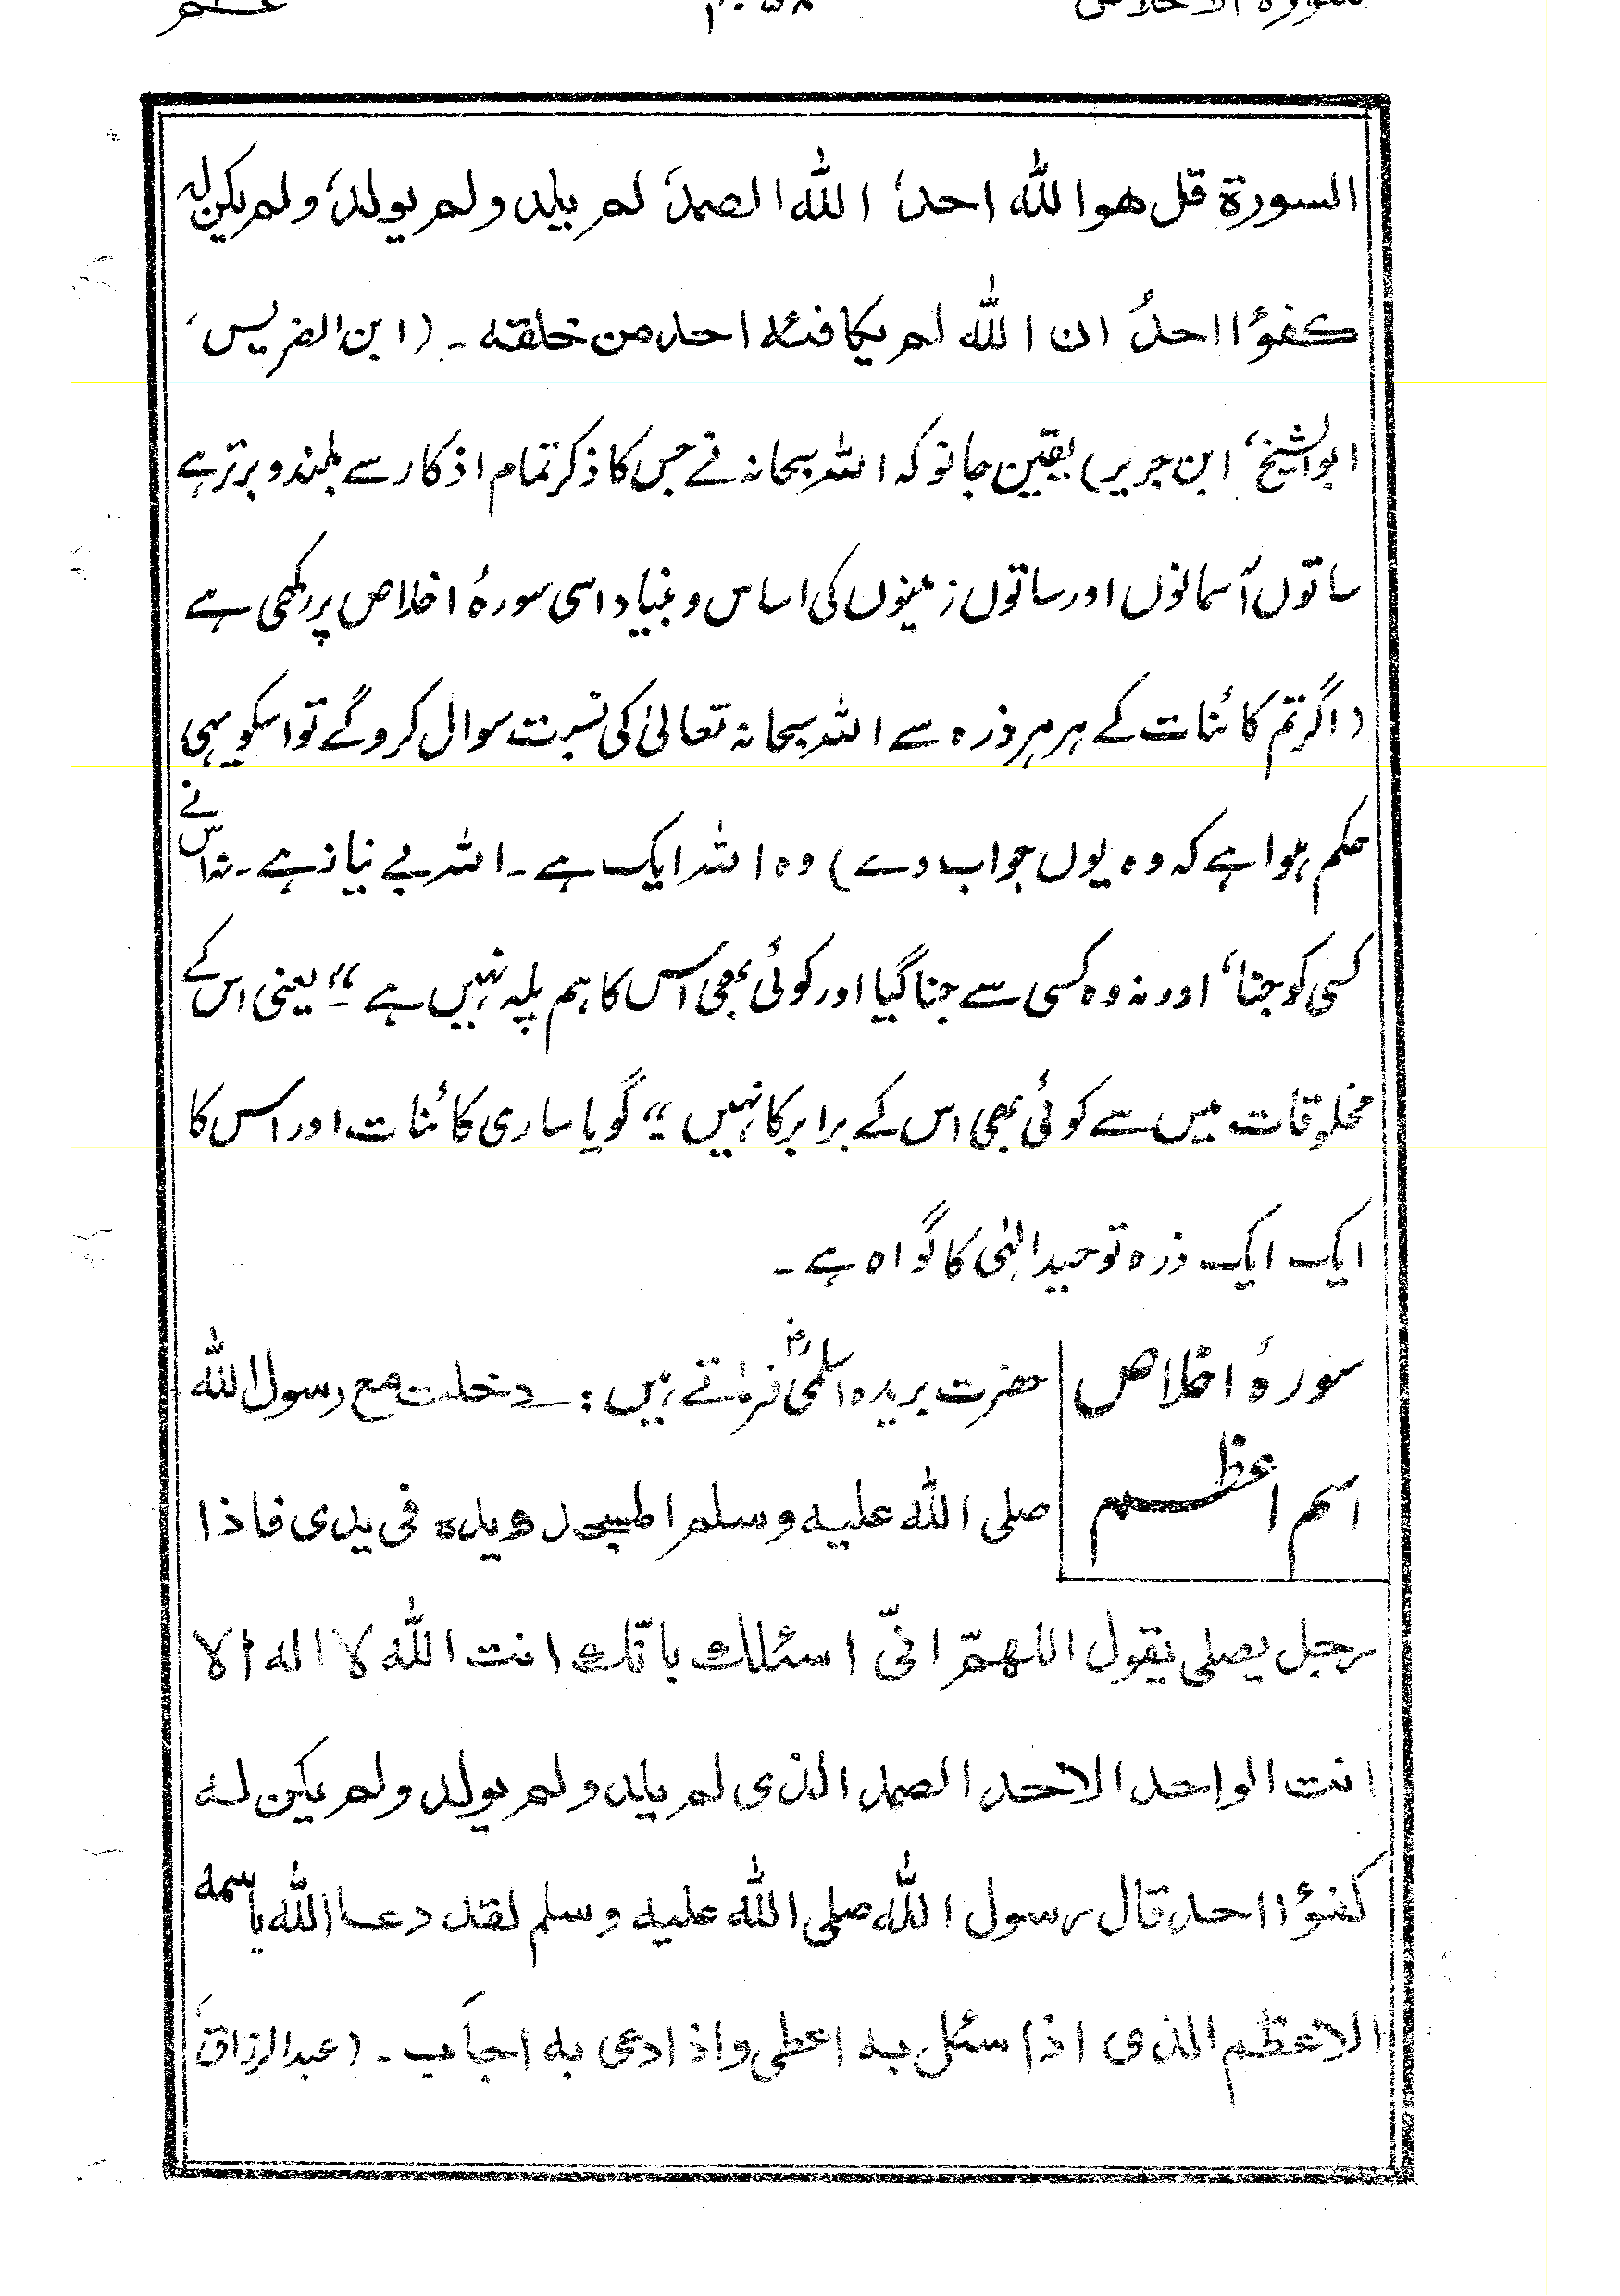 سورة الاخلاص ۴۰۵۸ عـــم
السورة قل هو الله احد، الله الصمد، لم يلد ولم يولد، ولم يكن له
كفوًا احدٌ ان الله لم يكافئه احد من خلقه ۔ (ابن الضریس،
ابوالشیخ، ابن جریر) یقین جانو کہ اللہ سبحانہ نے جس کا ذکر تمام اذکار سے بلند و برتر ہے
ساتوں آسمانوں اور ساتوں زمینوں کی اساس و بنیاد اسی سورۂ اخلاص پر رکھی ہے
(اگر تم کائنات کے ہر ہر ذرہ سے اللہ سبحانہ تعالیٰ کی نسبت سوال کرو گے تو اسکو یہی
حکم ہوا ہے کہ وہ یوں جواب دے) وہ اللہ ایک ہے ۔ اللہ بے نیاز ہے ۔ نہ اس نے
کسی کو جنا، اور نہ وہ کسی سے جنا گیا اور کوئی بھی اس کا ہم پلہ نہیں ہے ۔“ یعنی اس کے
مخلوقات میں سے کوئی بھی اس کے برابر کا نہیں ۔“ گویا ساری کائنات اور اس کا
ایک ایک ذرہ توحید الٰہی کا گواہ ہے ۔
سورۂ اخلاص
اسم اعظــم
حضرت بریدہ اسلمیؓ فرماتے ہیں :۔ دخلت مع رسول الله
صلى الله عليه وسلم المسجد ويده فى يدى فاذا
رجل يصلى يقول اللهمّ انىّ اسئلك بانّك انت الله لا اله الا
انت الواحد الاحد الصمد الذى لم يلد ولم يولد ولم يكن له
كفوًا احد قال رسول الله صلى الله عليه وسلم لقد دعا الله باسمه
الاعظم الذى اذا سئل به اعطى واذا دعى به اجاب ۔ (عبدالرزاق،